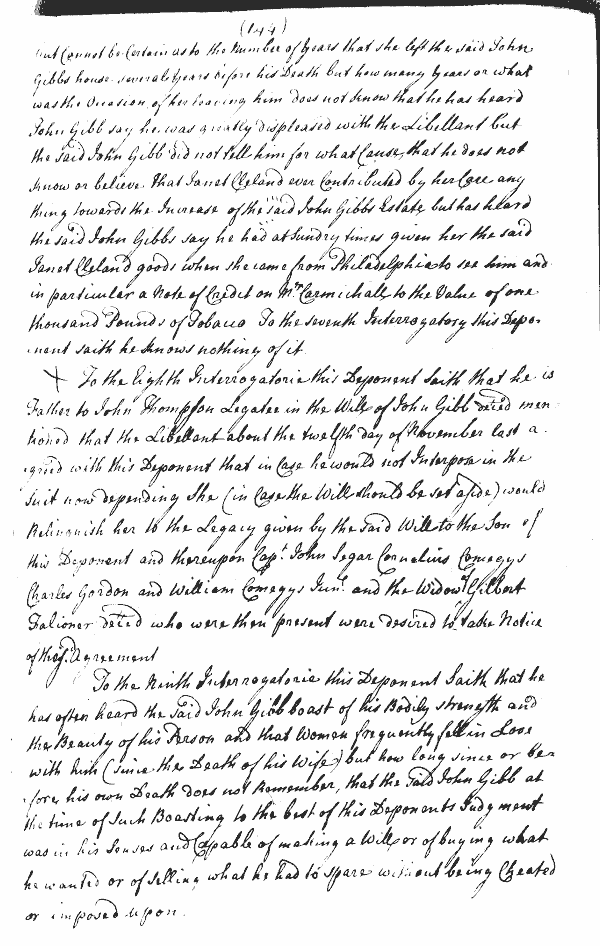 (144)
but Cannot be Certain as to the Number of Years that she left the said John
Gibbs house several Years before his Death but how many Years or what
was the Occasion of her leaving him does not know that he has heard
John Gibb say he was greatly displeased with the Libellant but
the said John Gibb did not tell him for what Cause, that he does not
know or believe that Janet Cleland ever Contributed by her Care any
thing towards the Increase of the said John Gibbs Estate but has heard
the said John Gibbs say he had at Sundry times given her the said
Janet Cleland goods when she came from Philadelphia to see him and
in particular a Note of Credit on Mr. Carmichall to the Value of one
thousand Pounds of Tobacco To the seventh Interrogatory this Depo-
nent saith he knows nothing of it
X To the Eighth Interrogatorie this Deponent Saith that he is
Father to John Thompson Legatee in the Will of John Gibb deced men
tioned that the Libellant about the twelfth day of November last a
greed with this Deponent that in Case he would not Interpose in the
Suit now depending She (in Case the Will should be set aside) would
Relinquish her to the Legacy given by the said Will to the Son of
this Deponent and thereupon Capt. John Segar Cornelius Comegys
Charles Gordon and William Comegys Junr. and the Widow of Gilbert
Falconer deced who were then present were desired to take Notice
of the sd. Agreement
To the Ninth Interrogatorie this Deponent Saith that he
has often heard the said John Gibb boast of his Bodily strength and
the Beauty of his Person and that Women frequently fell in Love
with him (since the Death of his Wife) but how long since or be-
fore his own Death does not Remember, that the said John Gibb at
the time of Such Boasting to the best of this Deponents Judgment
was in his Senses and Capable of making a Will or of buying what
he wanted or of selling what he had to spare without being Cheated
or imposed upon.